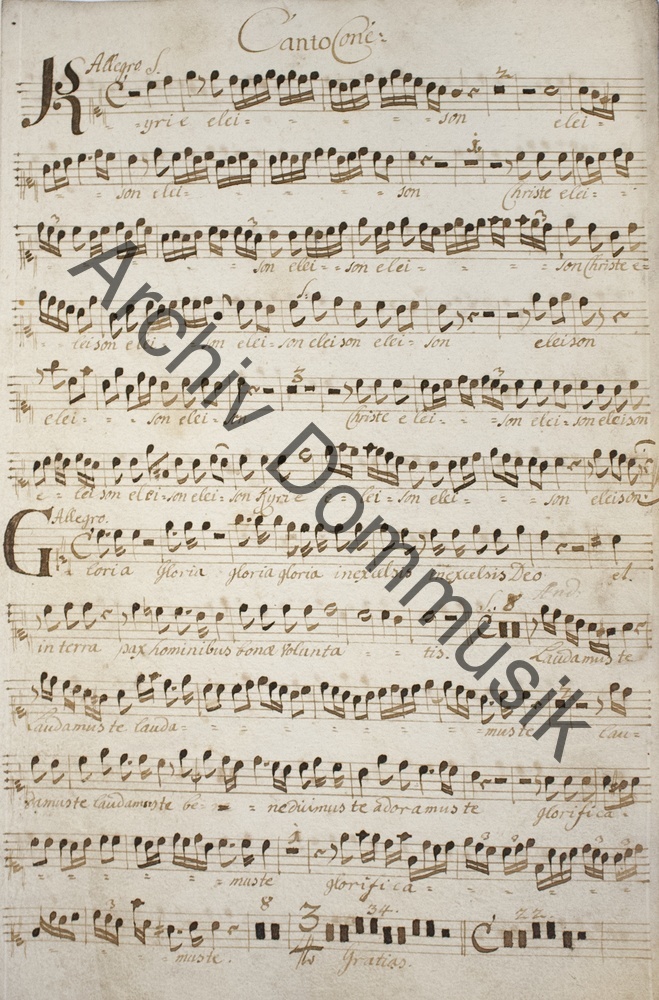 Canto Conc:
Allegro S.
Kyrie elei - son elei -
son elei - son Christe elei -
son elei - son elei - son Christe e -
leison elei - son elei - son eleison elei - son eleison
elei - son elei - son Christe elei - son elei - son eleison
e - leison elei - son elei - son Kyrie e - lei - son elei - son eleison
Allegro.
Gloria Gloria gloria gloria in excelsis in excelsis Deo et
S. 8 And.
in terra pax hominibus bonæ volunta - tis. Laudamus te
Laudamus te lauda - mus te lau -
damus te laudamus te be - nedicimus te adoramus te glorifica -
mus te glorifica -
8 3/4 34. C 22.
mus te. Gratias.
Archiv Dommusik